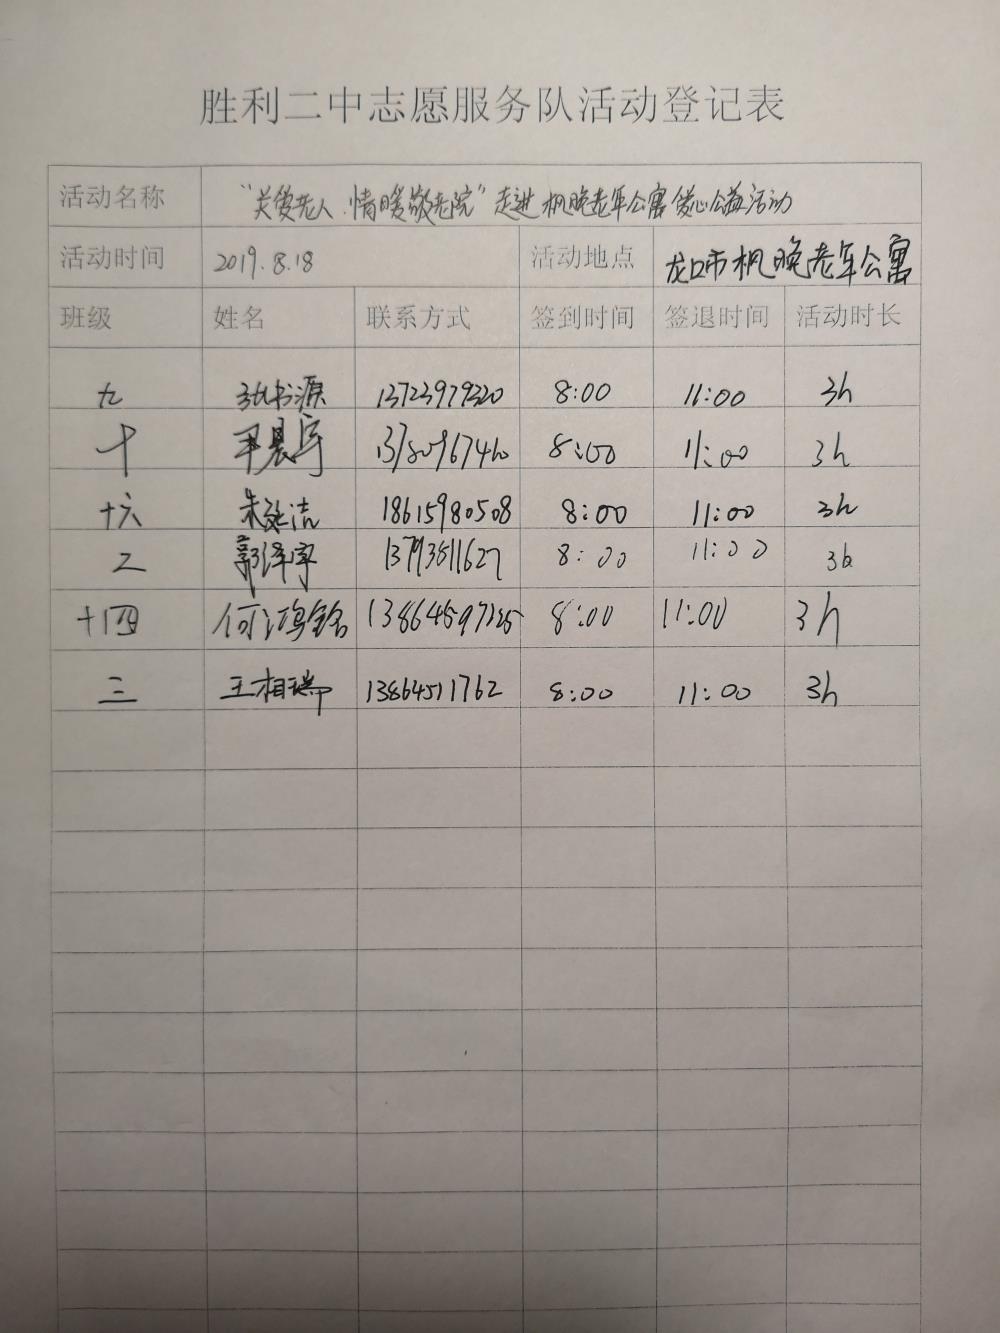 胜利二中志愿服务队活动登记表
活动名称 “关爱老人.情暖敬老院”走进枫晚老年公寓爱心公益活动
活动时间 2019.8.18 活动地点 龙口市枫晚老年公寓
班级 姓名 联系方式 签到时间 签退时间 活动时长
九 张书源 13723979320 8:00 11:00 3h
十 晨宇 8:00 11:00 3h
十六 朱延洁 18615980508 8:00 11:00 3h
二 郭泽宇 13793811627 8:00 11:00 3h
十四 何鸿铭 8:00 11:00 3h
三 王相瑞 13864511762 8:00 11:00 3h